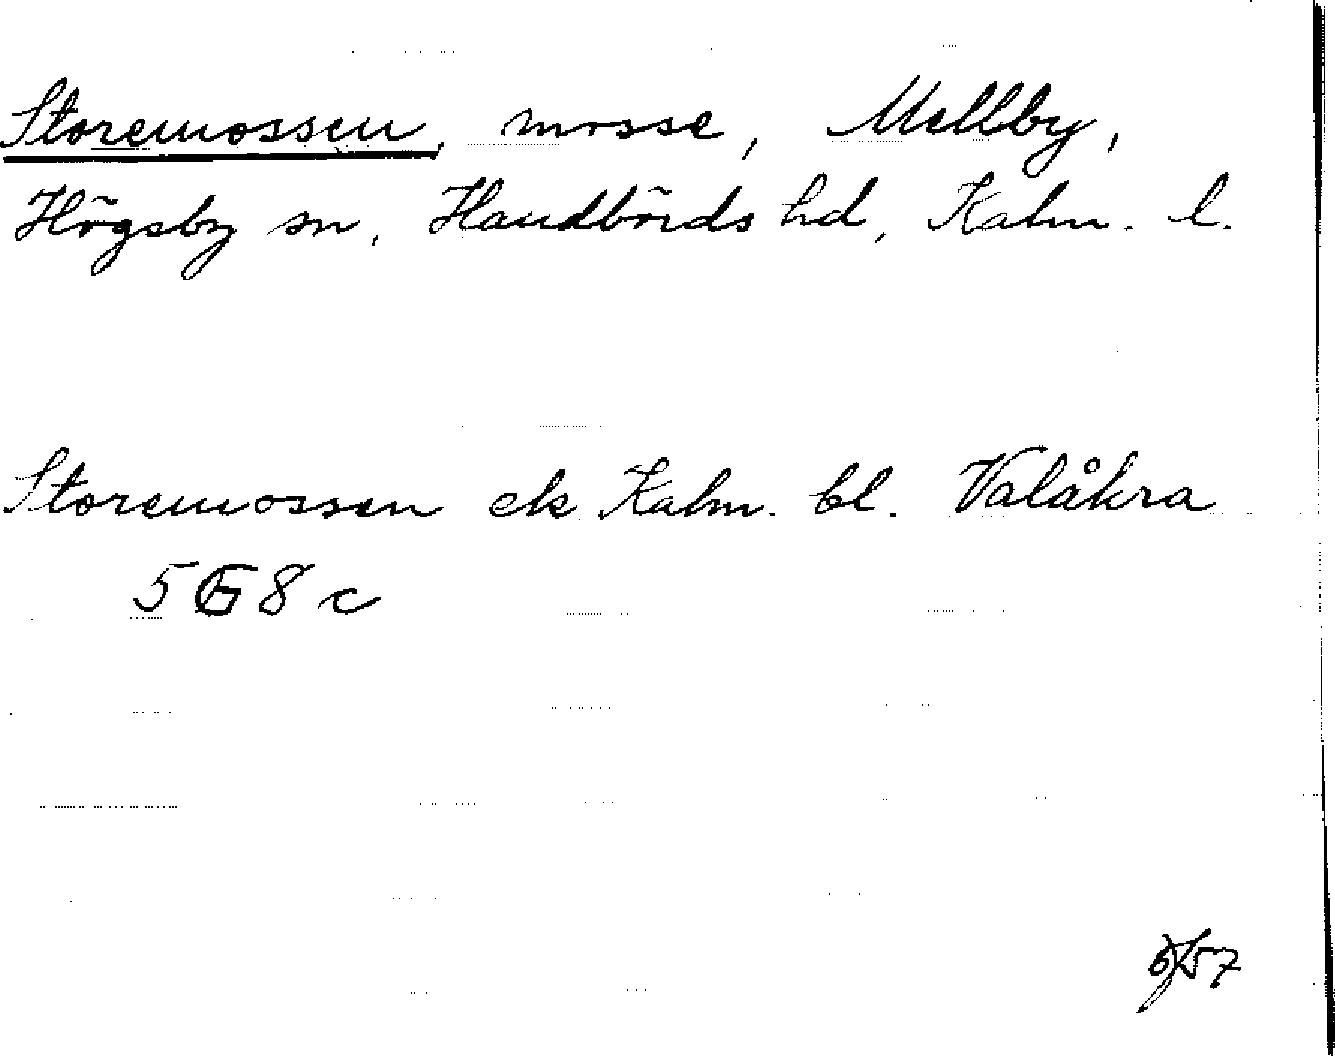 Storemossen, mosse, Mellby,
Högsby sn, Handbörds hd, Kalm. l.
Storemossen ek Kalm. bl. Valåkra
5G8c